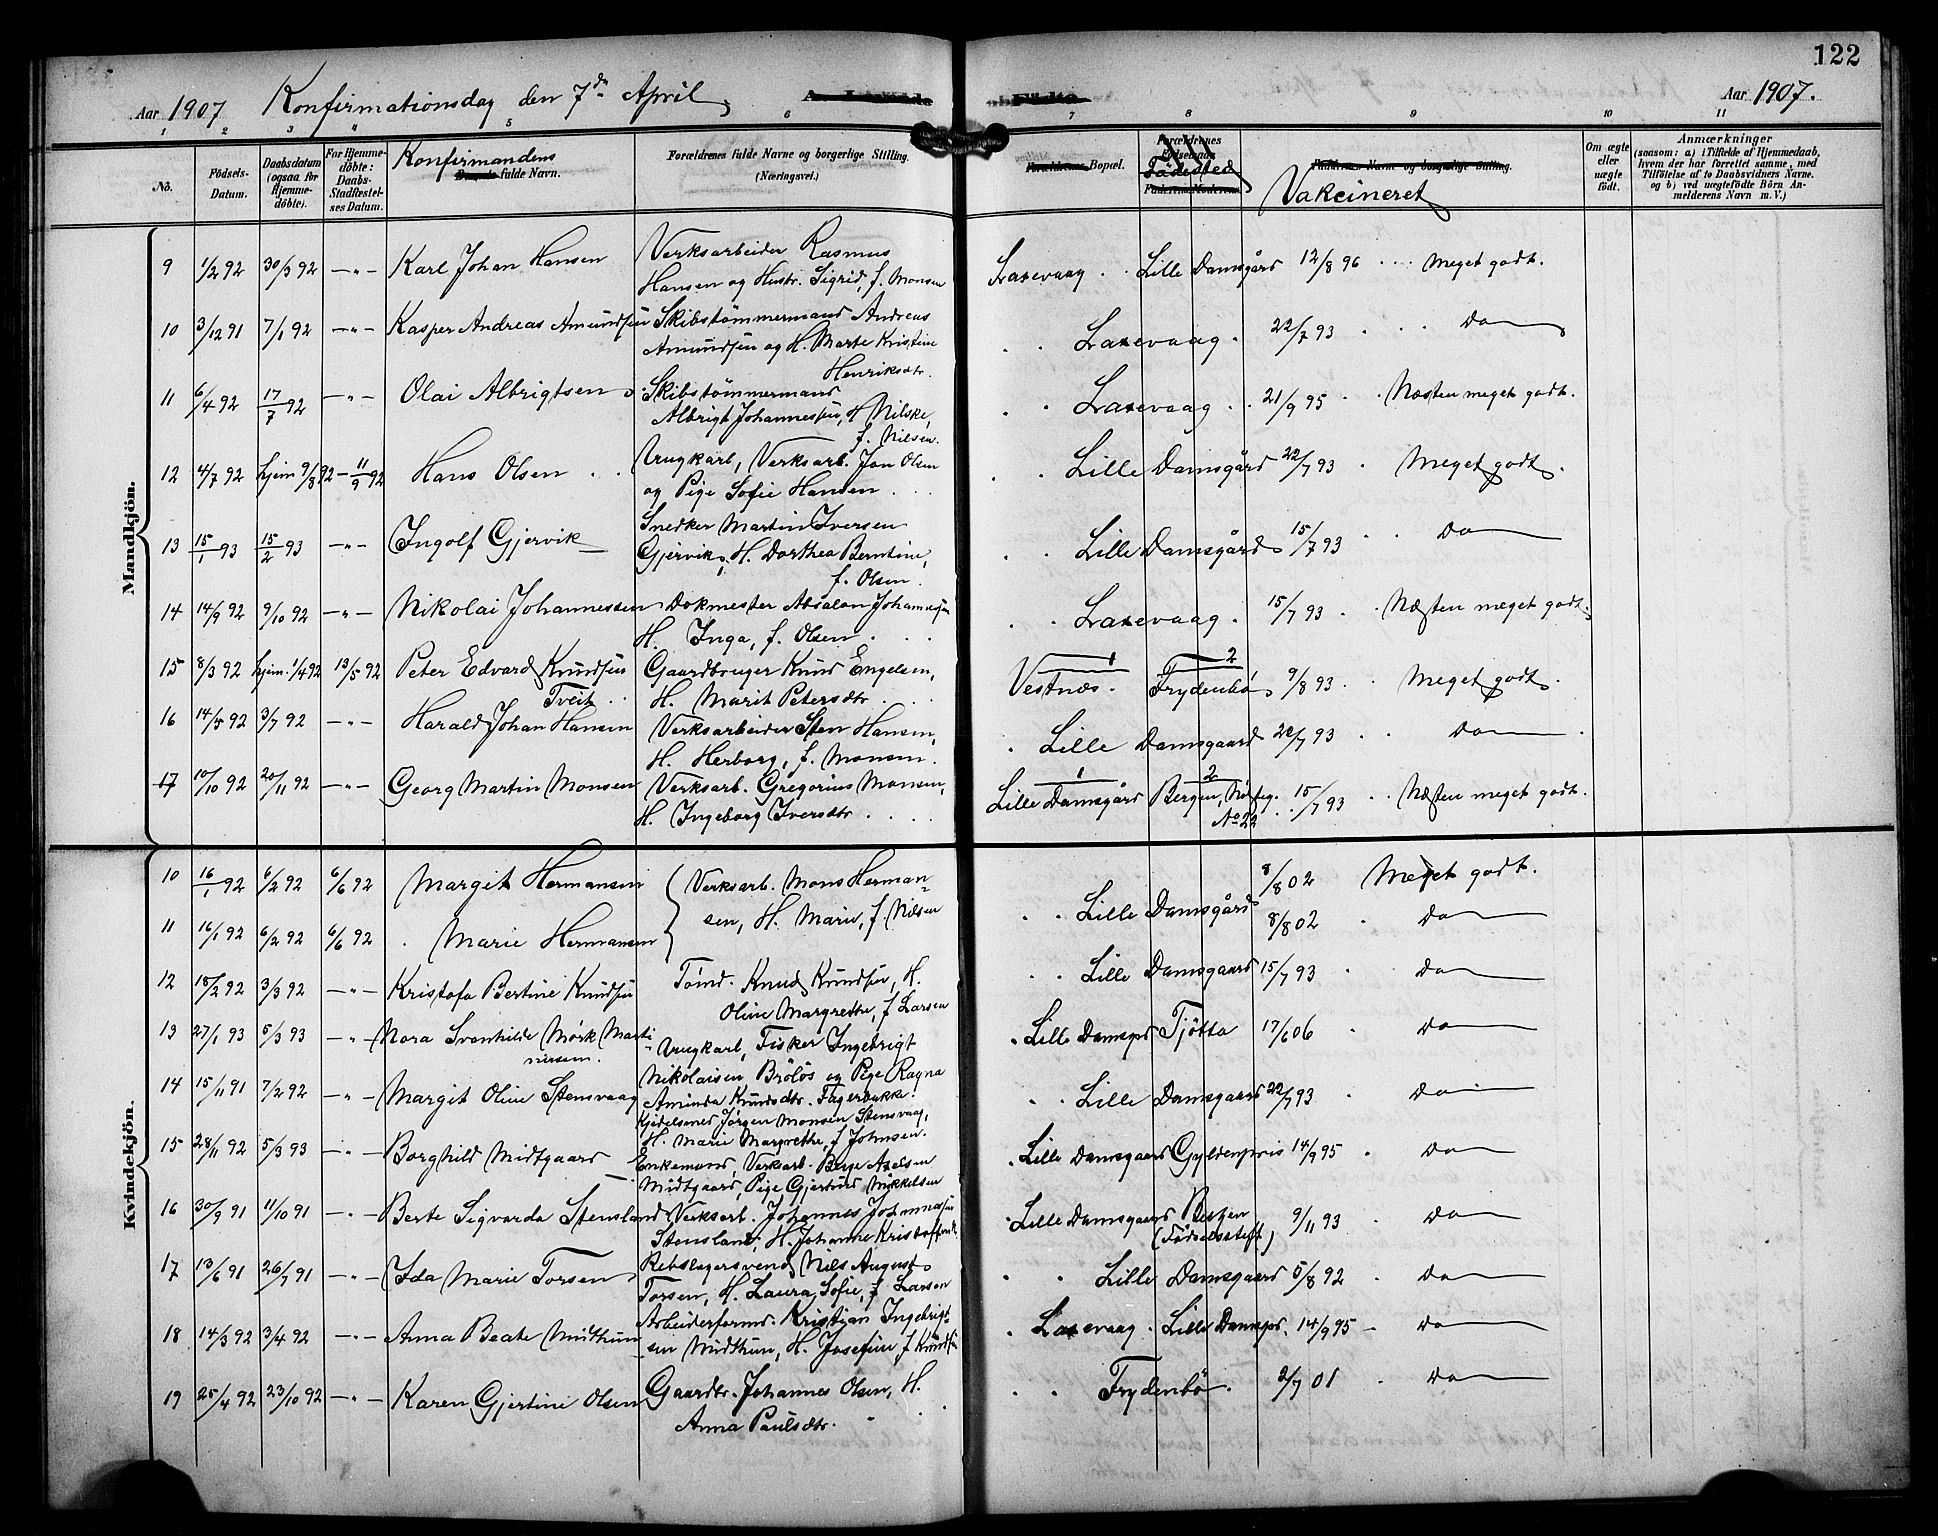 122
Aar 1907 Konfirmationsdag den 7de April
Aar 1907.
1 2 3 4 5 6 7 8 9 10 11
No. Födsels-Datum. Daabsdatum (ogsaa for Hjemmedöbte). For Hjemmedöbte: Daabs-Stadfestelses Datum. Konfirmandens fulde Navn. Forældrenes fulde Navne og borgerlige Stilling. (Næringsvei.)
Bopæl. Födested Vakcineret Om ægte eller uægte födt. Anmærkninger (saasom: a) i Tilfælde af Hjemmedaab, hvem der har forrettet samme, med Tilföielse af to Daabsvidners Navne. og b) ved uægtefödte Börn Anmelderens Navn m. V.)
Mandkjön.
9 1/2 92 30/3 92 —"— Karl Johan Hansen Verksarbeider Rasmus
Hansen og Hustr. Sigrid, f. Monsen
Laxevaag . . Lille Damsgård 12/8 96 . . . Meget godt.
10 3/12 91 7/1 92 —"— Kasper Andreas Amundsen Skibstömmermand Andreas
Amundsen og H. Marte Kristine
Henriksdtr.
. . Laxevaag . 22/7 93 . . Do
11 6/4 92 17/7 92 —"— Olai Albrigtsen Skibstömmermand
Albrigt Johannesen, H. Nilske,
f. Nilsen.
. . Laxevaag . . 21/9 95 . Næsten meget godt.
12 4/7 92 hjem 9/8 92 — 11/9 92 Hans Olsen . . Ungkarl, Verksarb. Jon Olsen
og Pige Sofie Hansen . . .
. . Lille Damsgård 22/7 93 . Meget godt.
13 15/1 93 15/2 93 —"— Ingolf Gjervik Snedker Martin Iversen
Gjervik, H. Dorthea Berntine,
f. Olsen.
. . Lille Damsgård 15/7 93 . Do
14 14/9 92 9/10 92 —"— Nikolai Johannessen Dokmester Absalon Johannesen
H. Inga, f. Olsen . . .
. . Laxevaag . 15/7 93 . . Næsten meget godt.
15 8/3 92 hjem. 1/4 92 13/5 92 Peter Edvard Knudsen
Tveit . Gaardbruger Knud Engelsen,
H. Marit Petersdtr . . .
1 Vestnæs. 2 Frydenbö 9/8 93 . . Meget godt.
16 14/5 92 3/7 92 —"— Harald Johan Hansen Verksarbeider Sten Hansen,
H. Herborg, f. Monsen.
. Lille Damsgaard 22/7 93 . . Do
17 10/10 92 20/11 92 —"— Georg Martin Monsen Verksarb. Gregorius Monsen,
H. Ingeborg Iversdtr . . . .
1 Lille Damsgård 2 Bergen, No 22 15/7 93 . . Næsten meget godt.
Kvindekjön.
10 16/1 92 6/2 92 6/6 92 Margit Hermansen Verksarb. Mons Herman-
sen, H. Marie, f. Nilsen
. . Lille Damsgård 8/8 02 Meget godt.
11 16/1 92 6/2 92 6/6 92 . Marie Hermansen
8/8 02 . Do
12 18/2 92 3/3 92 —"— Kristofa Bertine Knudsen Tömd. Knud Knudsen, H.
Oline Margrethe, f. Larsen
. . Lille Damsgaard 15/7 93 . Do
13 27/1 93 5/3 93 —"— Nora Svanhilde Mörk Marti-
niusen. Ungkarl, Fisker Ingebrigt
Nikolaisen Brölös og Pige Ragna
Aminda Knudsdtr. Fagerbakke.
. Lille Damsgrd Tjötta 17/6 06 . Do
14 15/11 91 7/2 92 —"— Margit Oline Stensvaag Kjedelsmed Jörgen Monsen Stensvaag,
H. Marie Margrethe, f. Johnsen.
. . Lille Damsgaard 22/7 93 . Do
15 28/11 92 5/3 93 —"— Borghild Midtgaard Enkemand, Verksarb. Berge Axelsen
Midtgaard, Pige Gjertrud Mikkelsen
. Lille Damsgaard Gyldenpris 14/9 95 . Do
16 30/9 91 11/10 91 —"— Berte Sigvarda Stensland Verksarb. Johannes Johannesen
Stensland, H. Johanne Kristoffersdtr
. Lille Damsgaard Bergen
(Födselsstift) 9/11 93 . Do
17 13/6 91 26/7 91 —"— Ida Marie Torsen Rebslagersvend Nils August
Torsen, H. Laura Sofie, f. Larsen
. . Lille Damsgaard 5/8 92 . Do
18 14/3 92 3/4 92 —"— Anna Beate Midthun Arbeiderformd. Kristjan Ingebrigt-
sen Midthun, H. Josefine, f. Knudsen
. Laxevaag . Lille Damsgrd. 14/9 95 . Do
19 25/4 92 23/10 92 —"— Karen Gjertine Olsen Gaardbr. Johannes Olsen, H.
Anna Paulsdtr.
. . Frydenbö . 2/7 01 . Do